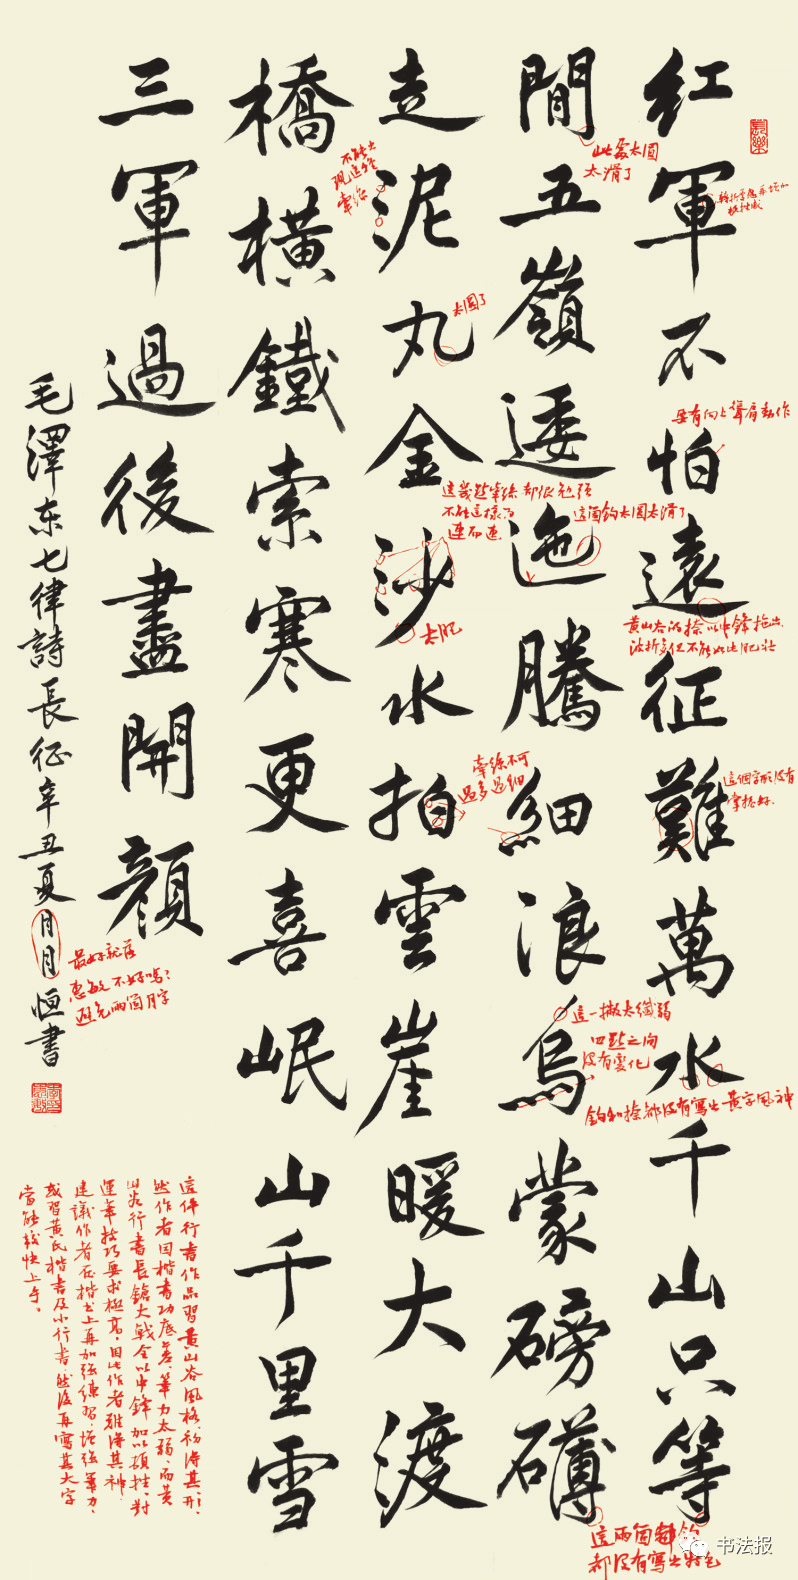 红軍不怕遠征難萬水千山只等
間五嶺逶迤騰細浪烏蒙磅礴
走泥丸金沙水拍雲崖暖大渡
橋橫鐵索寒更喜岷山千里雪
三軍過後盡開顏
毛澤东七律詩長征辛丑夏月月恒書
此處太圆
太滑了
不能出
現這種
牽絲
太圆了
要有向上聳肩動作
這幾處牽絲都很勉强
不能這樣为
連而連
這個鈎太圆太滑了
太肥
黄山谷的捺以中鋒拖出
波折多但不能如此肥壯
牽絲不可
過多過细
這個字形没有
掌握好
這一撇太纖弱
四點之间
没有變化
鈎和捺都没有寫出黄字風神
最好就落
惠敏不好嗎?
避免兩個月字
這兩個
都没有寫出特色
這件行書作品習黄山谷風格,初得其形,
然作者因楷書功底差,筆力太弱,而黄
山谷行書長鎗大戟全以中鋒加以頓挫,對
運筆技巧要求極高,因此作者難得其神,
建議作者在楷書上再加强練習,增强筆力,
或習黄氏楷書及小行書,然後再寫其大字
當能較快上手。
书法报